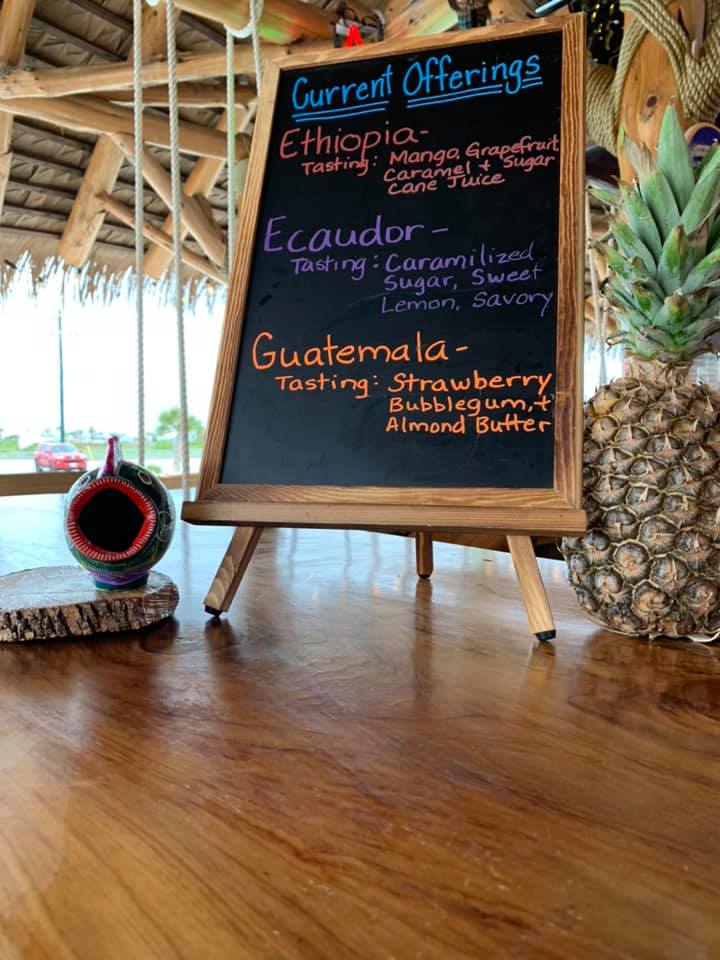 Current Offerings
Ethiopia-
Tasting: Mango, Grapefruit
Caramel + Sugar
Cane Juice
Ecaudor-
Tasting: Caramilized
Sugar, Sweet
Lemon, Savory
Guatemala-
Tasting: Strawberry
Bubblegum, +
Almond Butter